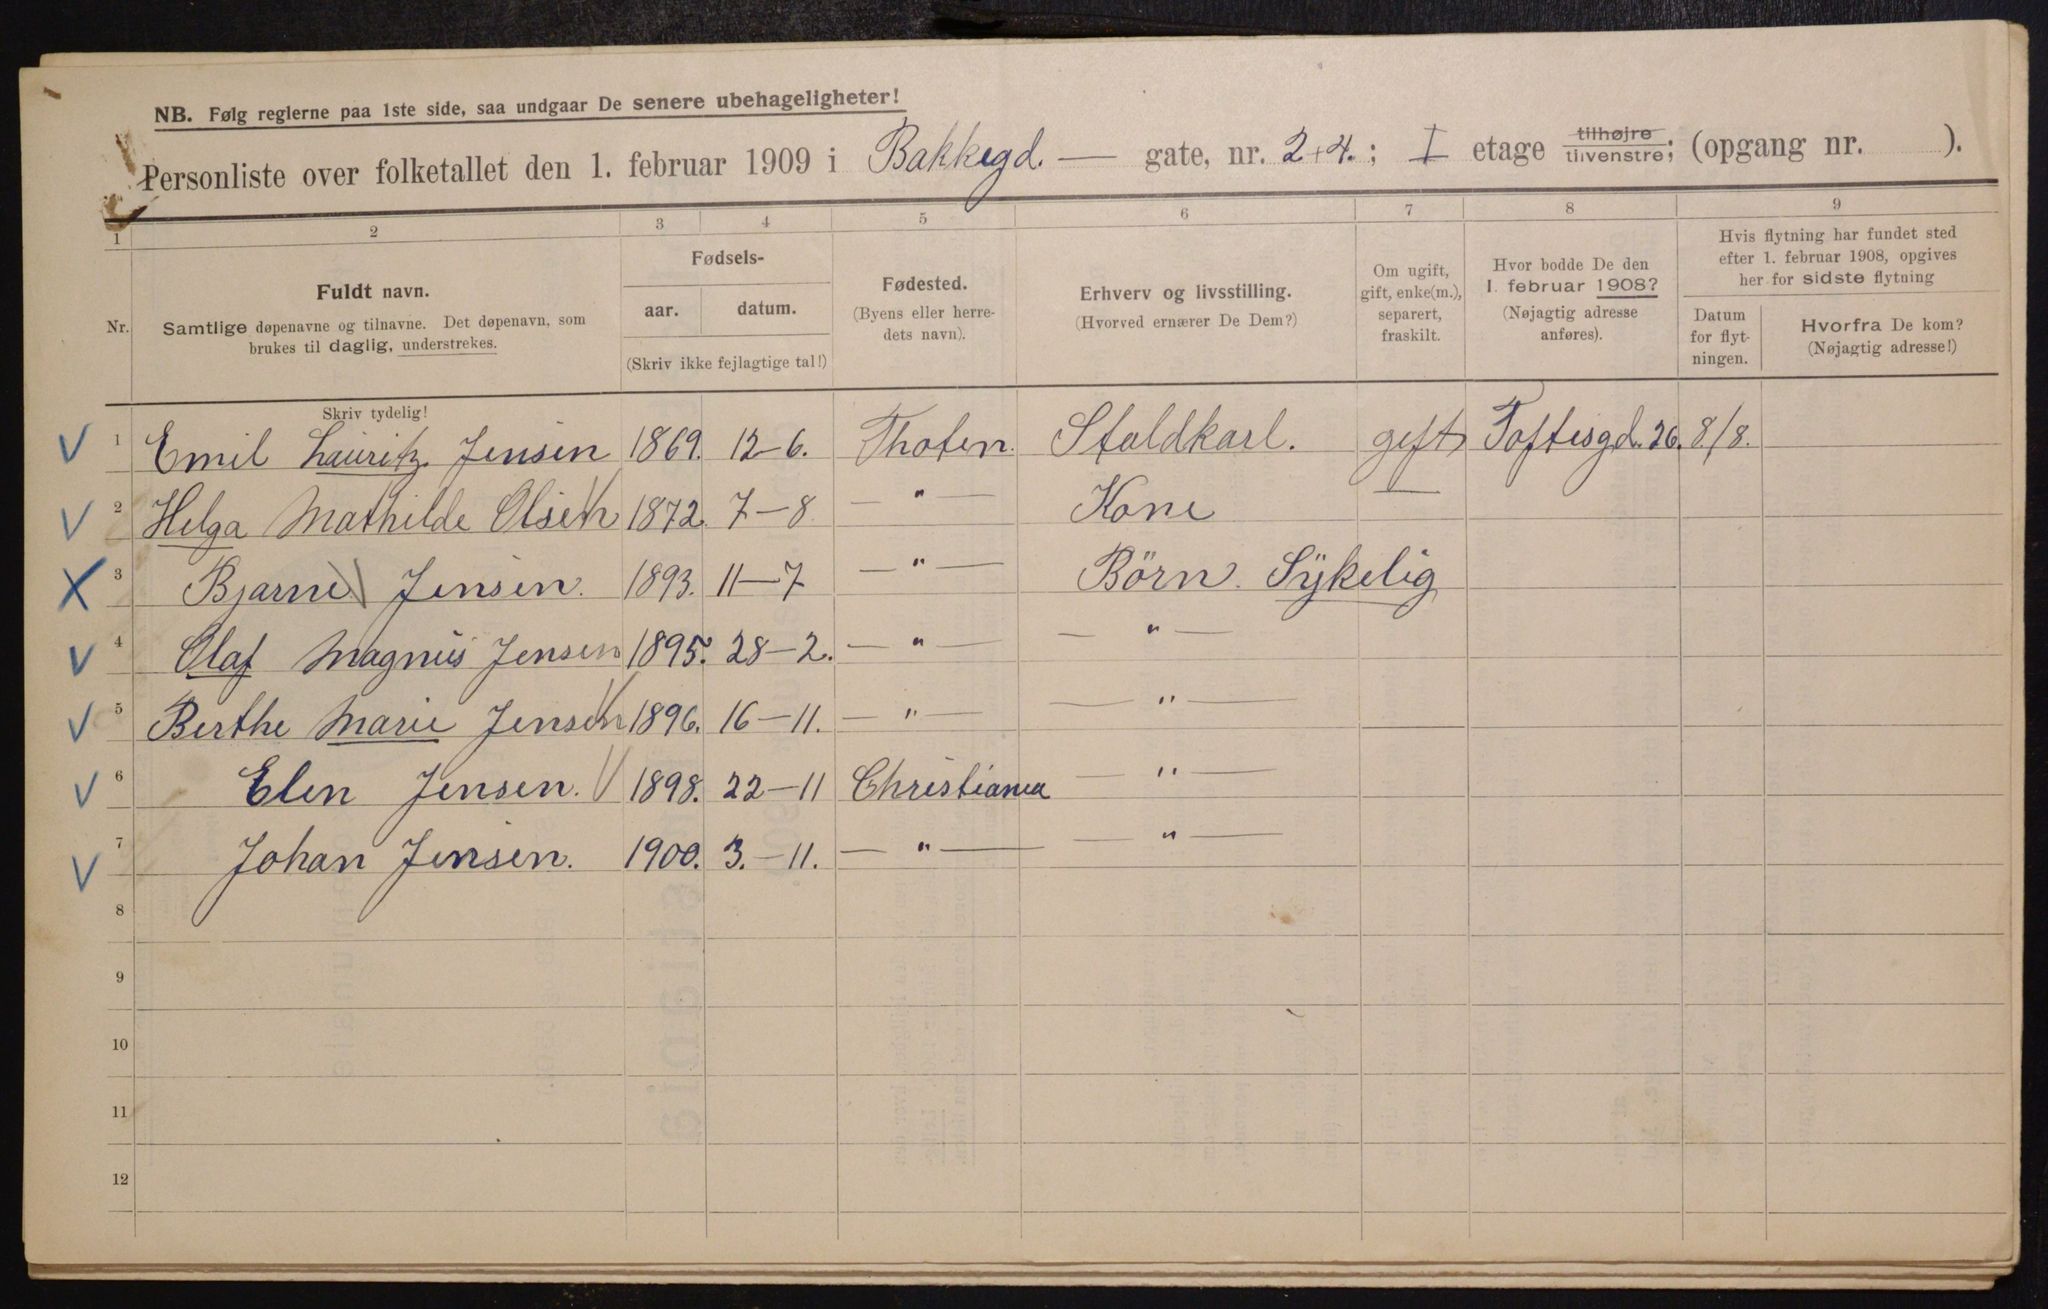 NB. Følg reglerne paa 1ste side, saa undgaar De senere ubehageligheter!
Personliste over folketallet den 1. februar 1909 i Bakkegd. — gate, nr. 2+4.; I etage tilhøjre/tilvenstre; (opgang nr. ).
1 2 3 4 5 6 7 8 9
Nr.
Fuldt navn.
Samtlige døpenavne og tilnavne. Det døpenavn, som
brukes til daglig, understrekes.
Fødsels-
aar. datum.
(Skriv ikke fejlagtige tal!)
Fødested.
(Byens eller herre-
dets navn).
Erhverv og livsstilling.
(Hvorved ernærer De Dem?)
Om ugift,
gift, enke(m.),
separert,
fraskilt.
Hvor bodde De den
1. februar 1908?
(Nøjagtig adresse
anføres).
Hvis flytning har fundet sted
efter 1. februar 1908, opgives
her for sidste flytning
Datum
for flyt-
ningen.
Hvorfra De kom?
(Nøjagtig adresse!)
Skriv tydelig!
1 Emil Lauritz. Jensen 1869. 12-6. Thoten. Staldkarl. gift Toftesgd. 26. 8/8.
2 Helga Mathilde Olsen 1872. 7-8 — " — Kone —
3 Bjarne Jensen. 1893. 11-7 — " — Börn. Sÿkelig
4 Olaf Magnus Jensen 1895. 28-2. — " — — " —
5 Berthe Marie Jensen 1896. 16-11. — " — — " —
6 Elen Jensen. 1898. 22-11 Christiania — " —
7 Johan Jensen. 1900. 3.-11. — " — — " —
8
9
10
11
12